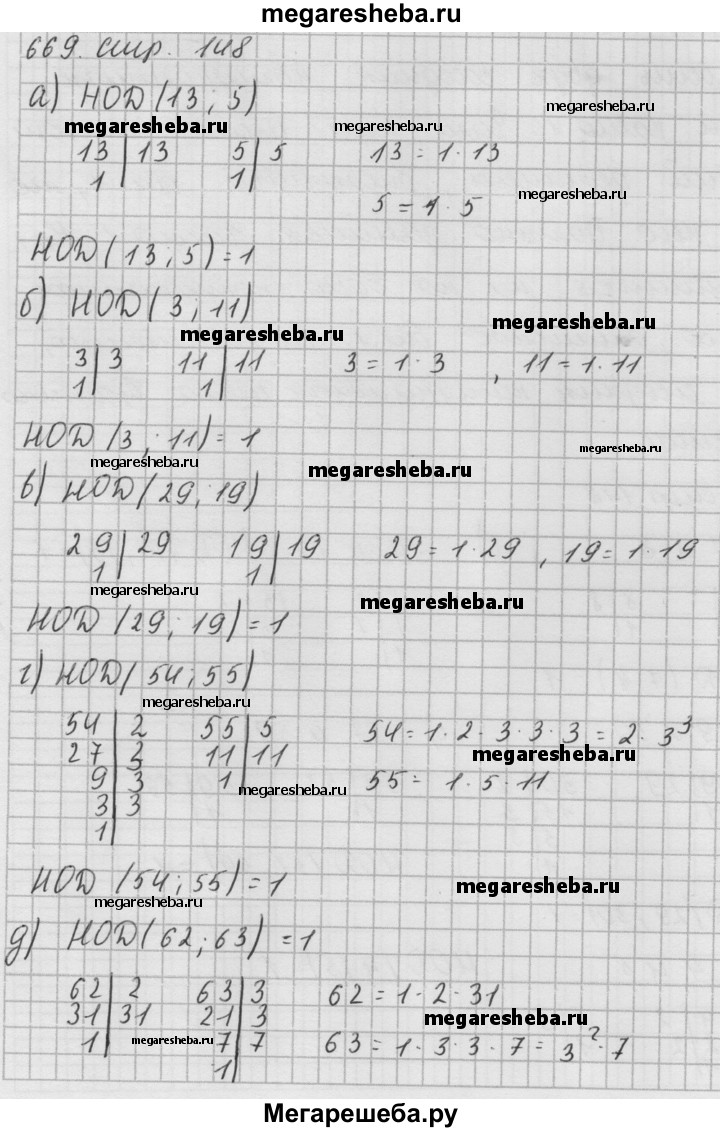 megaresheba.ru
669. стр. 148
а) НОД (13; 5)
megaresheba.ru
megaresheba.ru
megaresheba.ru
13 | 13 5 | 5 13 = 1 · 13
1 | 1 |
megaresheba.ru
5 = 1 · 5
НОД (13; 5) = 1
б) НОД (3; 11)
megaresheba.ru
megaresheba.ru
3 | 3 11 | 11 3 = 1 · 3 , 11 = 1 · 11
1 | 1 |
НОД (3; 11) = 1
megaresheba.ru
megaresheba.ru
megaresheba.ru
в) НОД (29; 19)
29 | 29 19 | 19 29 = 1 · 29 , 19 = 1 · 19
1 | 1 |
megaresheba.ru
megaresheba.ru
НОД (29; 19) = 1
г) НОД (54; 55)
megaresheba.ru
54 | 2 55 | 5 54 = 1 · 2 · 3 · 3 · 3 = 2 · 3³
27 | 3 11 | 11
megaresheba.ru
9 | 3 1 | 55 = 1 · 5 · 11
megaresheba.ru
3 | 3
1 |
НОД (54; 55) = 1
megaresheba.ru
megaresheba.ru
д) НОД (62; 63) = 1
62 | 2 63 | 3 62 = 1 · 2 · 31
31 | 31 21 | 3
megaresheba.ru
1 | 7 | 7 63 = 1 · 3 · 3 · 7 = 3² · 7
megaresheba.ru
1 |
Мегарешеба.ру